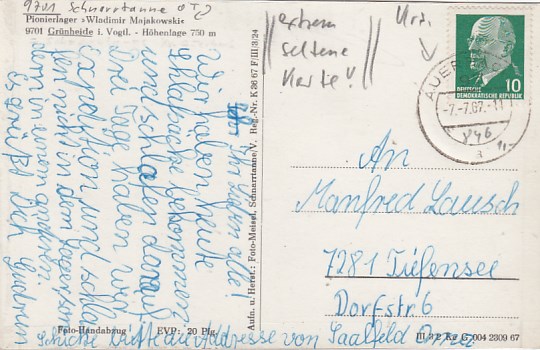 9701 Schnarrtanne OT
Pionierlager »Wladimir Majakowski«
9701 Grünheide i. Vogtl. - Höhenlage 750 m
extrem
seltene
Karte!
AUERBACH
-7.-7.67.-11
a
DEUTSCHE
DEMOKRATISCHE REPUBLIK
10
Ihr Lieben alle!
Wir haben heute
bekommen
und schlafen darauf.
Drei Tage haben wir
Exbedition und schla
fen nicht in dem
dem in einem anderen.
Es grüßt Dich Gudrun
Schicke bitte die Addresse von Saalfeld
An
Manfred Lausch
7281 Tiefensee
Dorfstr 6
Aufn. u. Herst.: Foto-Meisel, Schnarrtanne/V. Reg.-Nr. K 36 67 F/III/3/24
Foto-Handabzug EVP: 20 Pfg.
004 2309 67